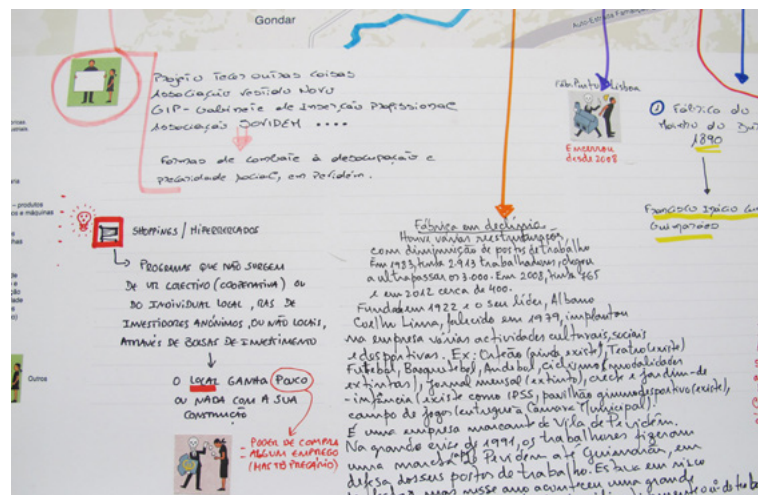 Gondar
Auto-Estrada
Projeto Tecer outras coisas
Associação Vestido Novo
GIP - Gabinete de Inserção Profissional
Associação SOVIDEM ....
Formas de combate à desocupação e
precaridade social, em Pevidém.
Fáb. Lisboa
Encerrou
desde 2008
1 Fábrica do
Moinho do
1890
Francisco Inácio
Guimarães
produtos
e máquinas
Outros
SHOPPINGS / HIPERMERCADOS
PROGRAMAS QUE NÃO SURGEM
DE UM COLECTIVO (COOPERATIVA) OU
DO INDIVIDUAL LOCAL, MAS DE
INVESTIDORES ANÓNIMOS, OU NÃO LOCAIS,
ATRAVÉS DE BOLSAS DE INVESTIMENTO
O LOCAL GANHA POUCO
OU NADA COM A SUA
CONSTRUÇÃO
= PODER DE COMPRA
= ALGUM EMPREGO
(MAS TÃO PRECÁRIO)
Fábrica em declínio
Houve várias reestruturações
com diminuição de postos de trabalho
Em 1983, tinha 2.913 trabalhadores, chegou
a ultrapassar os 3.000. Em 2008, tinha 765
e em 2012 cerca de 400.
Fundada em 1922 e o seu líder, Albano
Coelho Lima, falecido em 1979, implantou
na empresa várias actividades culturais, sociais
e desportivas. Ex: Orfeão (ainda existe), Teatro (existe)
Futebol, Basquetebol, Andebol, ciclismo (modalidades
extintas), Jornal mensal (extinto), creche e jardim-de
-infância (existe como IPSS, pavilhão gimnodesportivo (existe),
campo de jogos (entregue à Câmara Municipal).
É uma empresa marcante de Vila de Pevidém.
Na grande crise de 1991, os trabalhores fizeram
uma marcha de Pevidém até Guimarães, em
defesa dos seus postos de trabalho. Estava em risco
mas nisse ano aconteceu uma grande